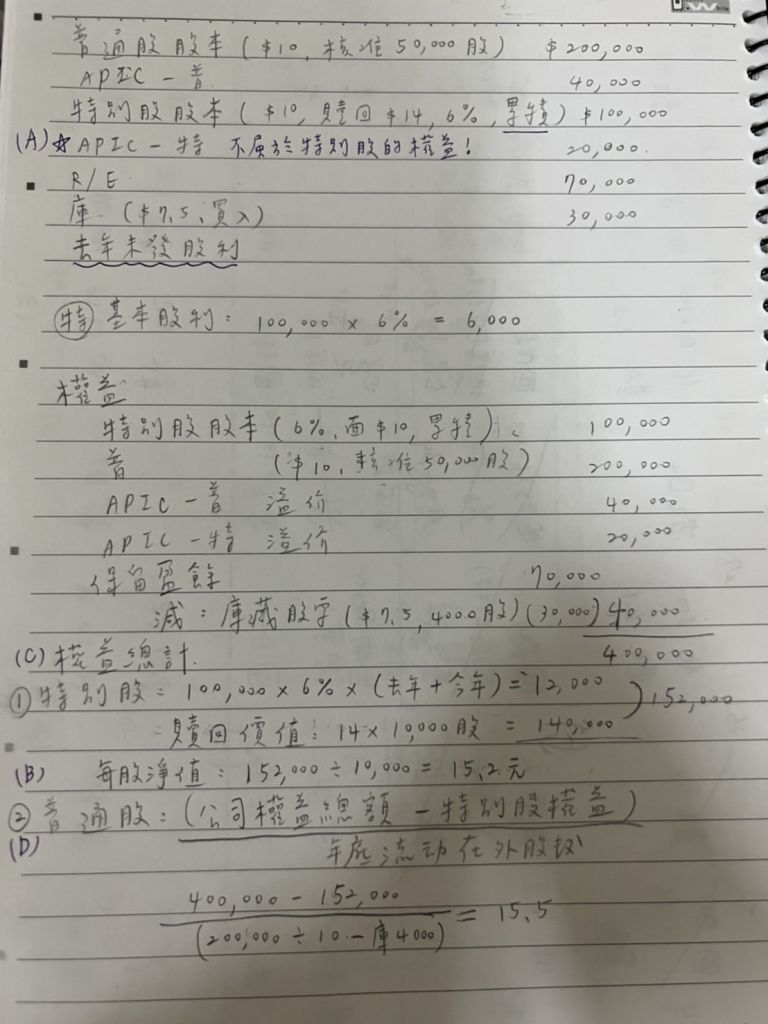 普通股股本 ($10, 核准50,000股) $200,000
APIC-普 40,000
特別股股本 ($10, 贖回$14, 6%, 累積) $100,000
(A)☆APIC-特 不屬於特別股的權益! 20,000.
R/E. 70,000
庫. ($7.5、買入) 30,000
去年未發股利
特 基本股利: 100,000 × 6% = 6,000
權益
特別股股本 (6%, 面$10, 累積) 100,000
普 ($10, 核准50,000股) 200,000
APIC-普 溢价 40,000
APIC-特 溢价 20,000
保留盈餘 70,000
減: 庫藏股票 ($7.5, 4000股) (30,000) 40,000
(C) 權益總計. 400,000
①特別股: 100,000 × 6% × (去年+今年) = 12,000
贖回價值: 14 × 10,000股 = 140,000 ) 152,000
(B) 每股淨值: 152,000 ÷ 10,000 = 15.2元
②普通股: (公司權益總額 - 特別股權益)
(D) 年底流动在外股数
400,000 - 152,000
(200,000 ÷ 10 - 庫4000) = 15.5